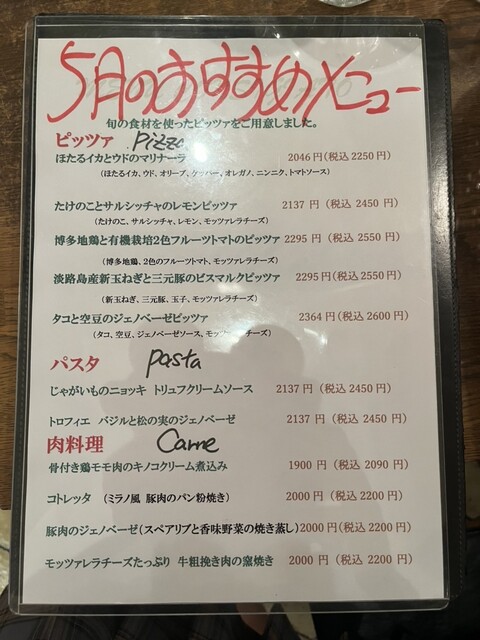 5月のおすすめメニュー
旬の食材を使ったピッツァをご用意しました。
ピッツァ Pizza
ほたるイカとウドのマリナーラ 2046円(税込2250円)
(ほたるイカ、ウド、オリーブ、ケッパー、オレガノ、ニンニク、トマトソース)
たけのことサルシッチャのレモンピッツァ 2137 円 (税込 2450 円)
(たけのこ、サルシッチャ、レモン、モッツァレラチーズ)
博多地鶏と有機栽培2色フルーツトマトのピッツァ 2295 円 (税込 2550 円)
(博多地鶏、2色のフルーツトマト、モッツァレラチーズ)
淡路島産新玉ねぎと三元豚のビスマルクピッツァ 2295円(税込2550円)
(新玉ねぎ、三元豚、玉子、モッツァレラチーズ)
タコと空豆のジェノベーゼピッツァ 2364円(税込2600円)
(タコ、空豆、ジェノベーゼソース、モッツァレラチーズ)
パスタ Pasta
じゃがいものニョッキ トリュフクリームソース 2137円(税込2450円)
トロフィエ バジルと松の実のジェノベーゼ 2137 円 (税込 2450 円)
肉料理 Carne
骨付き鶏モモ肉のキノコクリーム煮込み 1900 円 (税込 2090 円)
コトレッタ (ミラノ風 豚肉のパン粉焼き) 2000 円 (税込 2200 円)
豚肉のジェノベーゼ(スペアリブと香味野菜の焼き蒸し) 2000円(税込 2200円)
モッツァレラチーズたっぷり 牛粗挽き肉の窯焼き 2000 円 (税込 2200 円)